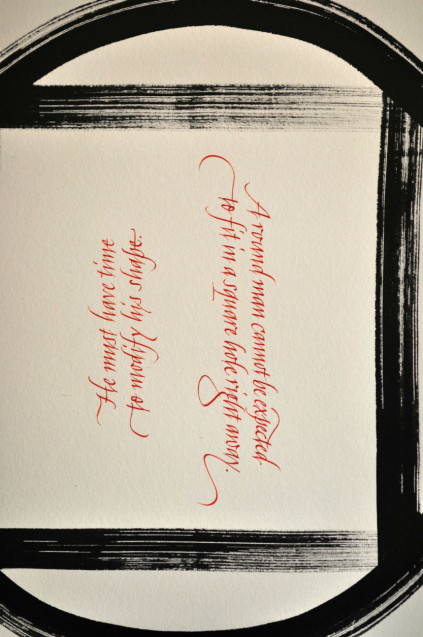 A round man cannot be expected
to fit in a square hole right away.
He must have time
to modify his shape.